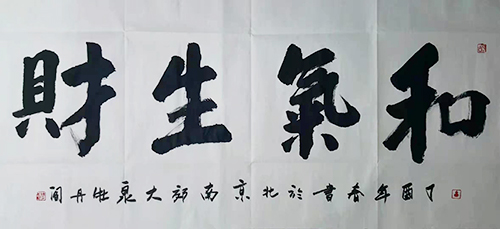 和氣生財
丁酉年春書於北京南郊大泉牡丹